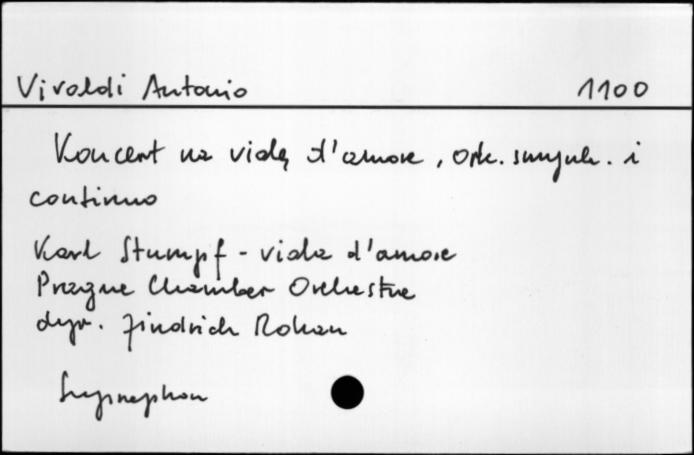 Vivaldi Antonio 1100
Koncert na violę d'amore, ork. smyczk. i
continuo
Karl Stumpf - viola d'amore
Prague Chamber Orchestre
dyr. Jindrich Rohan
Supraphon